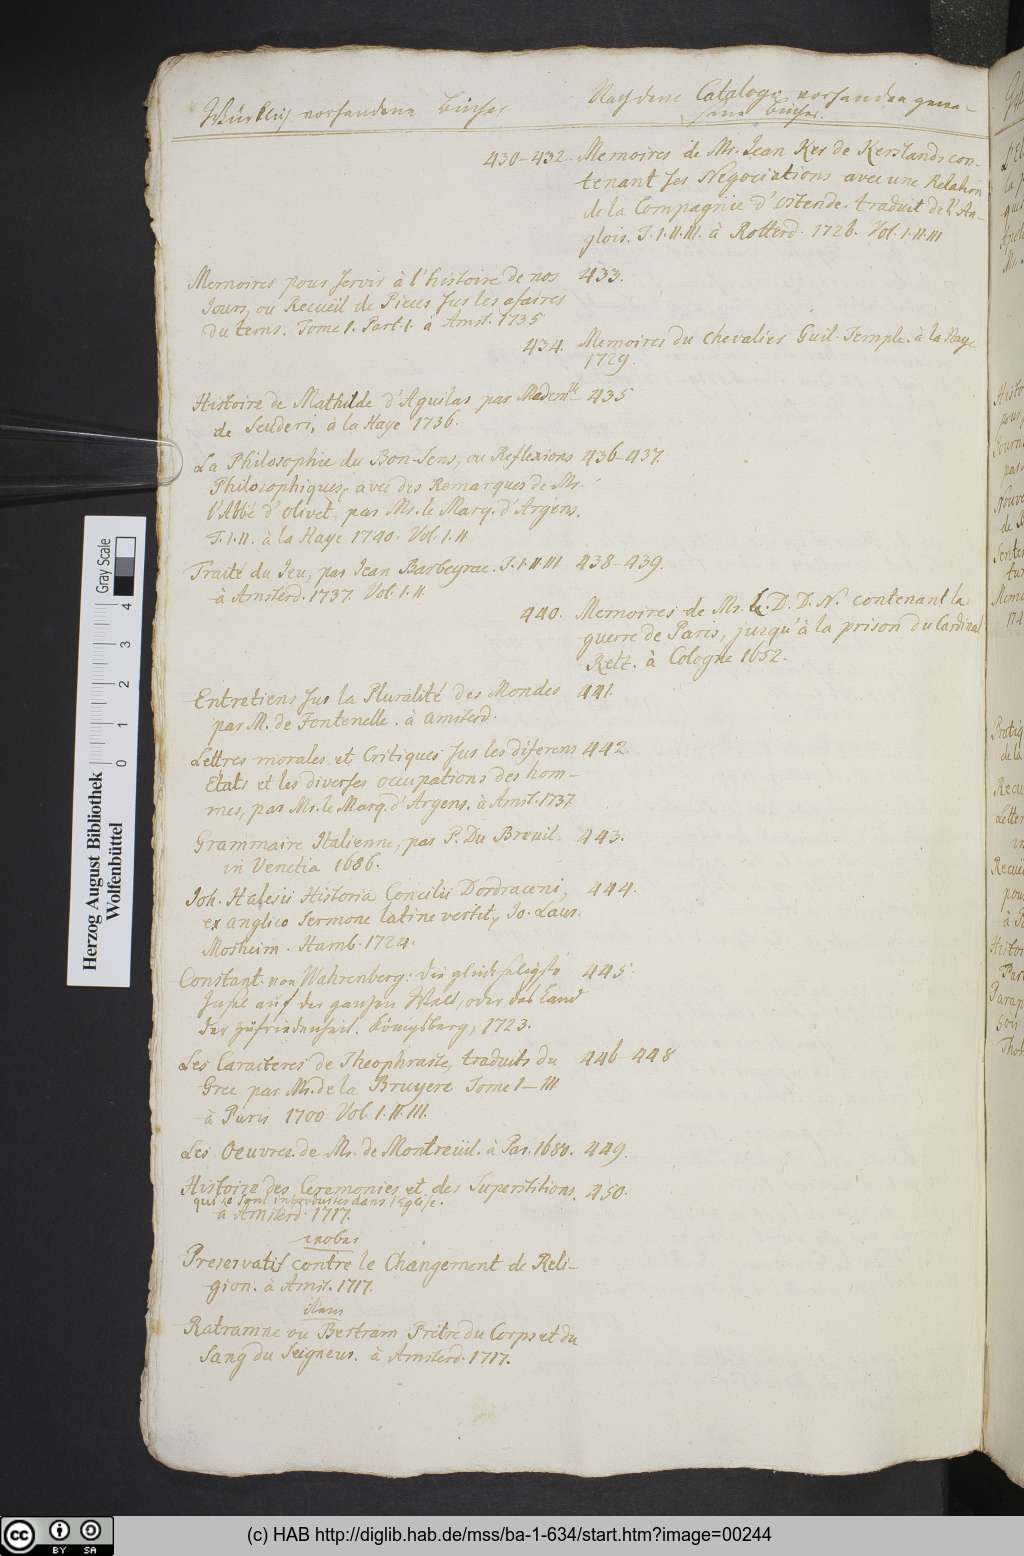 Würklich vorhandene Bücher
Nach dem Catalogo vorhanden gewe-
sene Bücher.
430-432. Memoires de Mr. Jean Ker de Kersland con-
tenant ses Negociations avec une Relation
de la Compagnie d'Ostende. traduit de l'An-
glois. T. I. II. III. à Rotterd. 1726. Vol. I. II. III
Memoires pour servir à l'histoire de nos 433.
Jours, ou Recueil de Pieces sur les afaires
du tems. Tome I. Part. I. à Amst. 1735
434. Memoires du Chevalier Guil. Temple. à la Haye
1729.
Histoire de Mathilde d'Aguilar par Mademlle 435
de Scuderi, à la Haye 1736.
La Philosophie du Bon-Sens, ou Reflexions 436-437.
Philosophiques, avec des Remarques de Mr.
l'Abbé d'olivet, par Mr. le Marq. d'Argens.
T. I. II. à la Haye 1740. Vol. I. II
Traité du Jeu, par Jean Barbeyrac. T. I. II. III 438-439.
à Amsterd. 1737. Vol. I. II.
440. Memoires de Mr. L. D. D. N. contenant la
guerre de Paris, jusqu'à la prison du Cardinal
Retz. à Cologne 1652.
Entretiens sur la Pluralité des Mondes 441.
par M. de Fontenelle. à Amsterd.
Lettres morales et Critiques sur les diferens 442.
Etats et les diverses occupations des hom-
mes, par Mr. le Marq. d'Argens. à Amst. 1737
Grammaire Italienne, par P. Du Breuil. 443.
in Venetia 1686.
Joh. Halesii Historia Concilii Dordraceni, 444.
ex anglico Sermone latine vertit, Jo. Laur.
Mosheim. Hamb. 1724.
Constant. von Wahrenberg: die glückseligste 445.
Insel auf der gantzen Welt, oder das Land
der Zufriedenheit. Königsberg, 1723.
Les Caracteres de Theophraste, traduits du 446-448
Grec par Mr. de la Bruyere Tome I-III
à Paris 1700 Vol. I. II. III.
Les Oeuvres de Mr. de Montreüil. à Par. 1680. 449.
Histoire des Ceremonies et des Superstitions, 450.
qui se sont introduites dans l'Eglise.
à Amsterd. 1717.
Preservatif contre le Changement de Reli-
gion. à Amst. 1717.
Ratramne ou Bertram Prêtre du Corps et du
Sang du Seigneur. à Amsterd. 1717.
Herzog August Bibliothek
Wolfenbüttel
Gray Scale
0 1 2 3 4
cc BY SA
(c) HAB http://diglib.hab.de/mss/ba-1-634/start.htm?image=00244